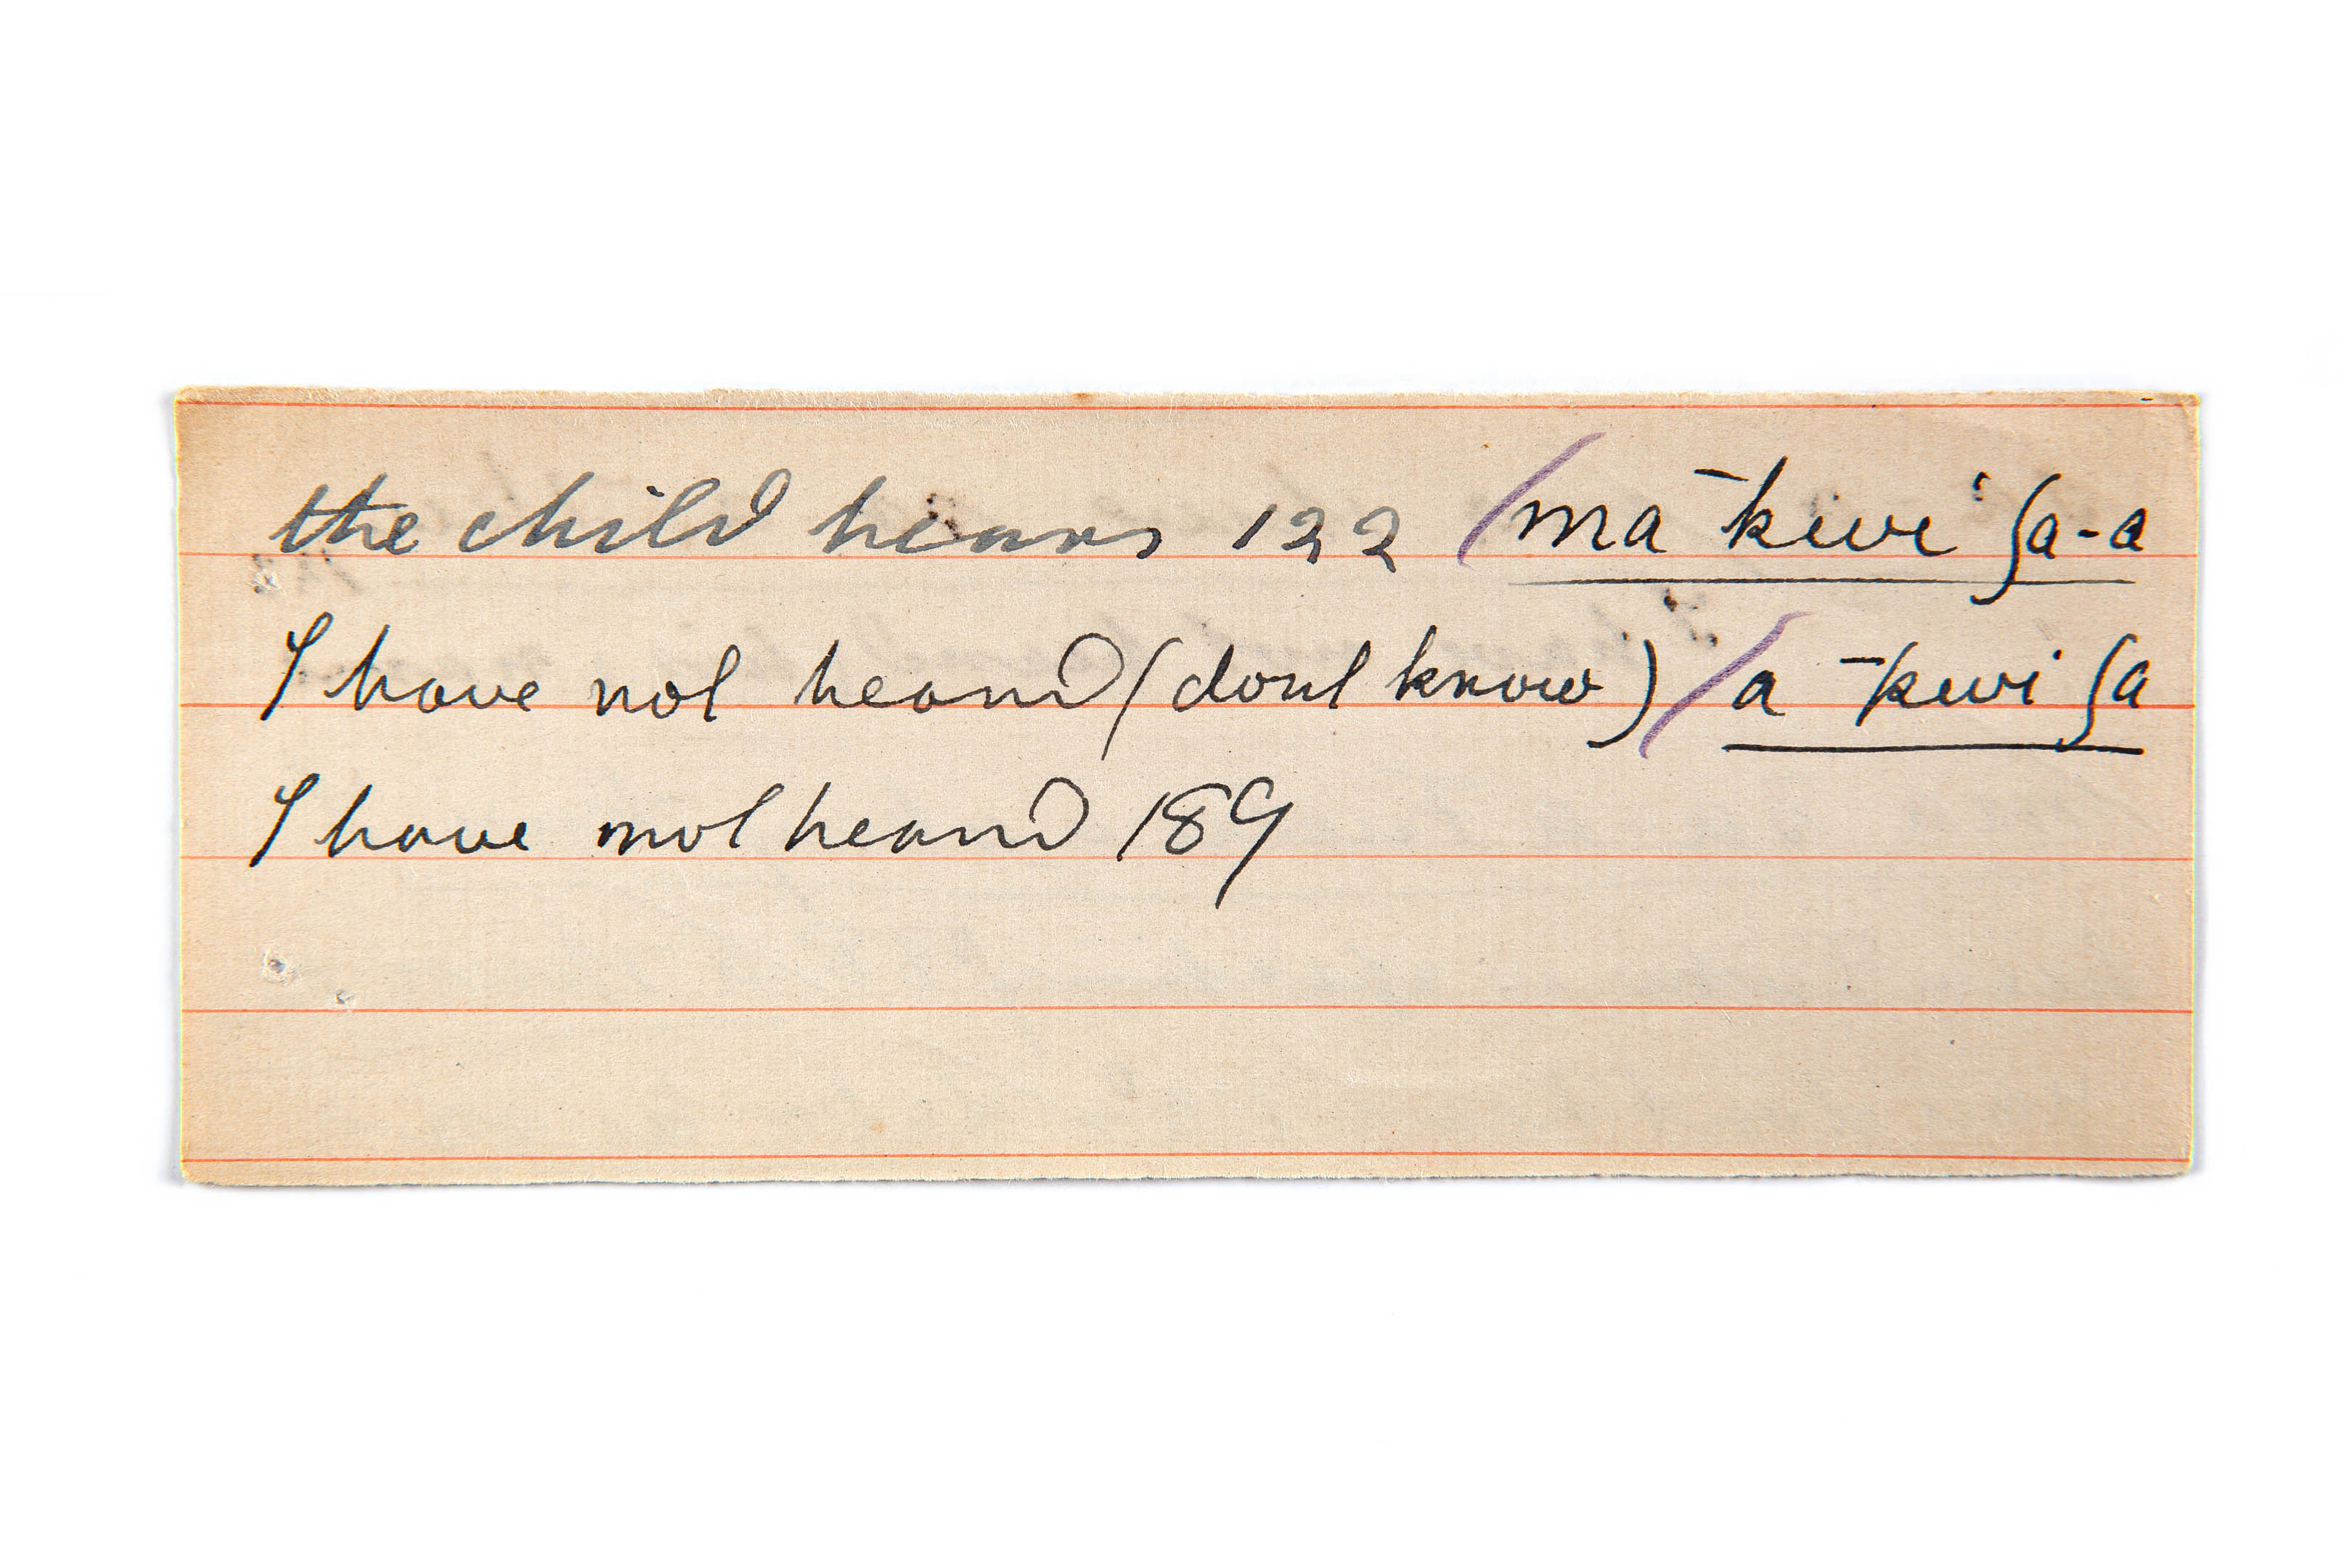 the child hears 122 /ma ‾kiwi ʃa-a
I have not heard (dont know) /a ‾kwi ʃa
I have not heard 189